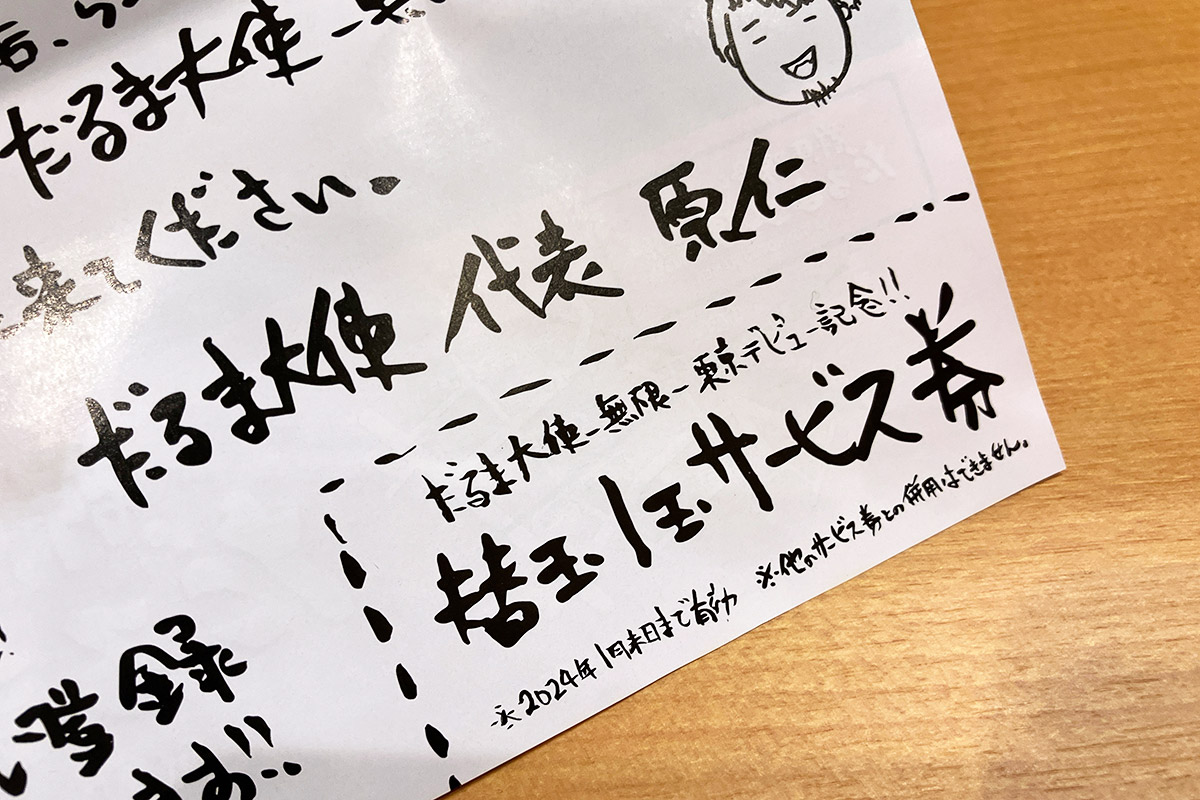 だるま大使
来てください。
だるま大使 代表 原仁
だるま大使-無限-東京デビュー記念!!
替玉1玉サービス券
※2024年1月末日まで有効 ※他のサービス券との併用はできません。
登録
ます!!